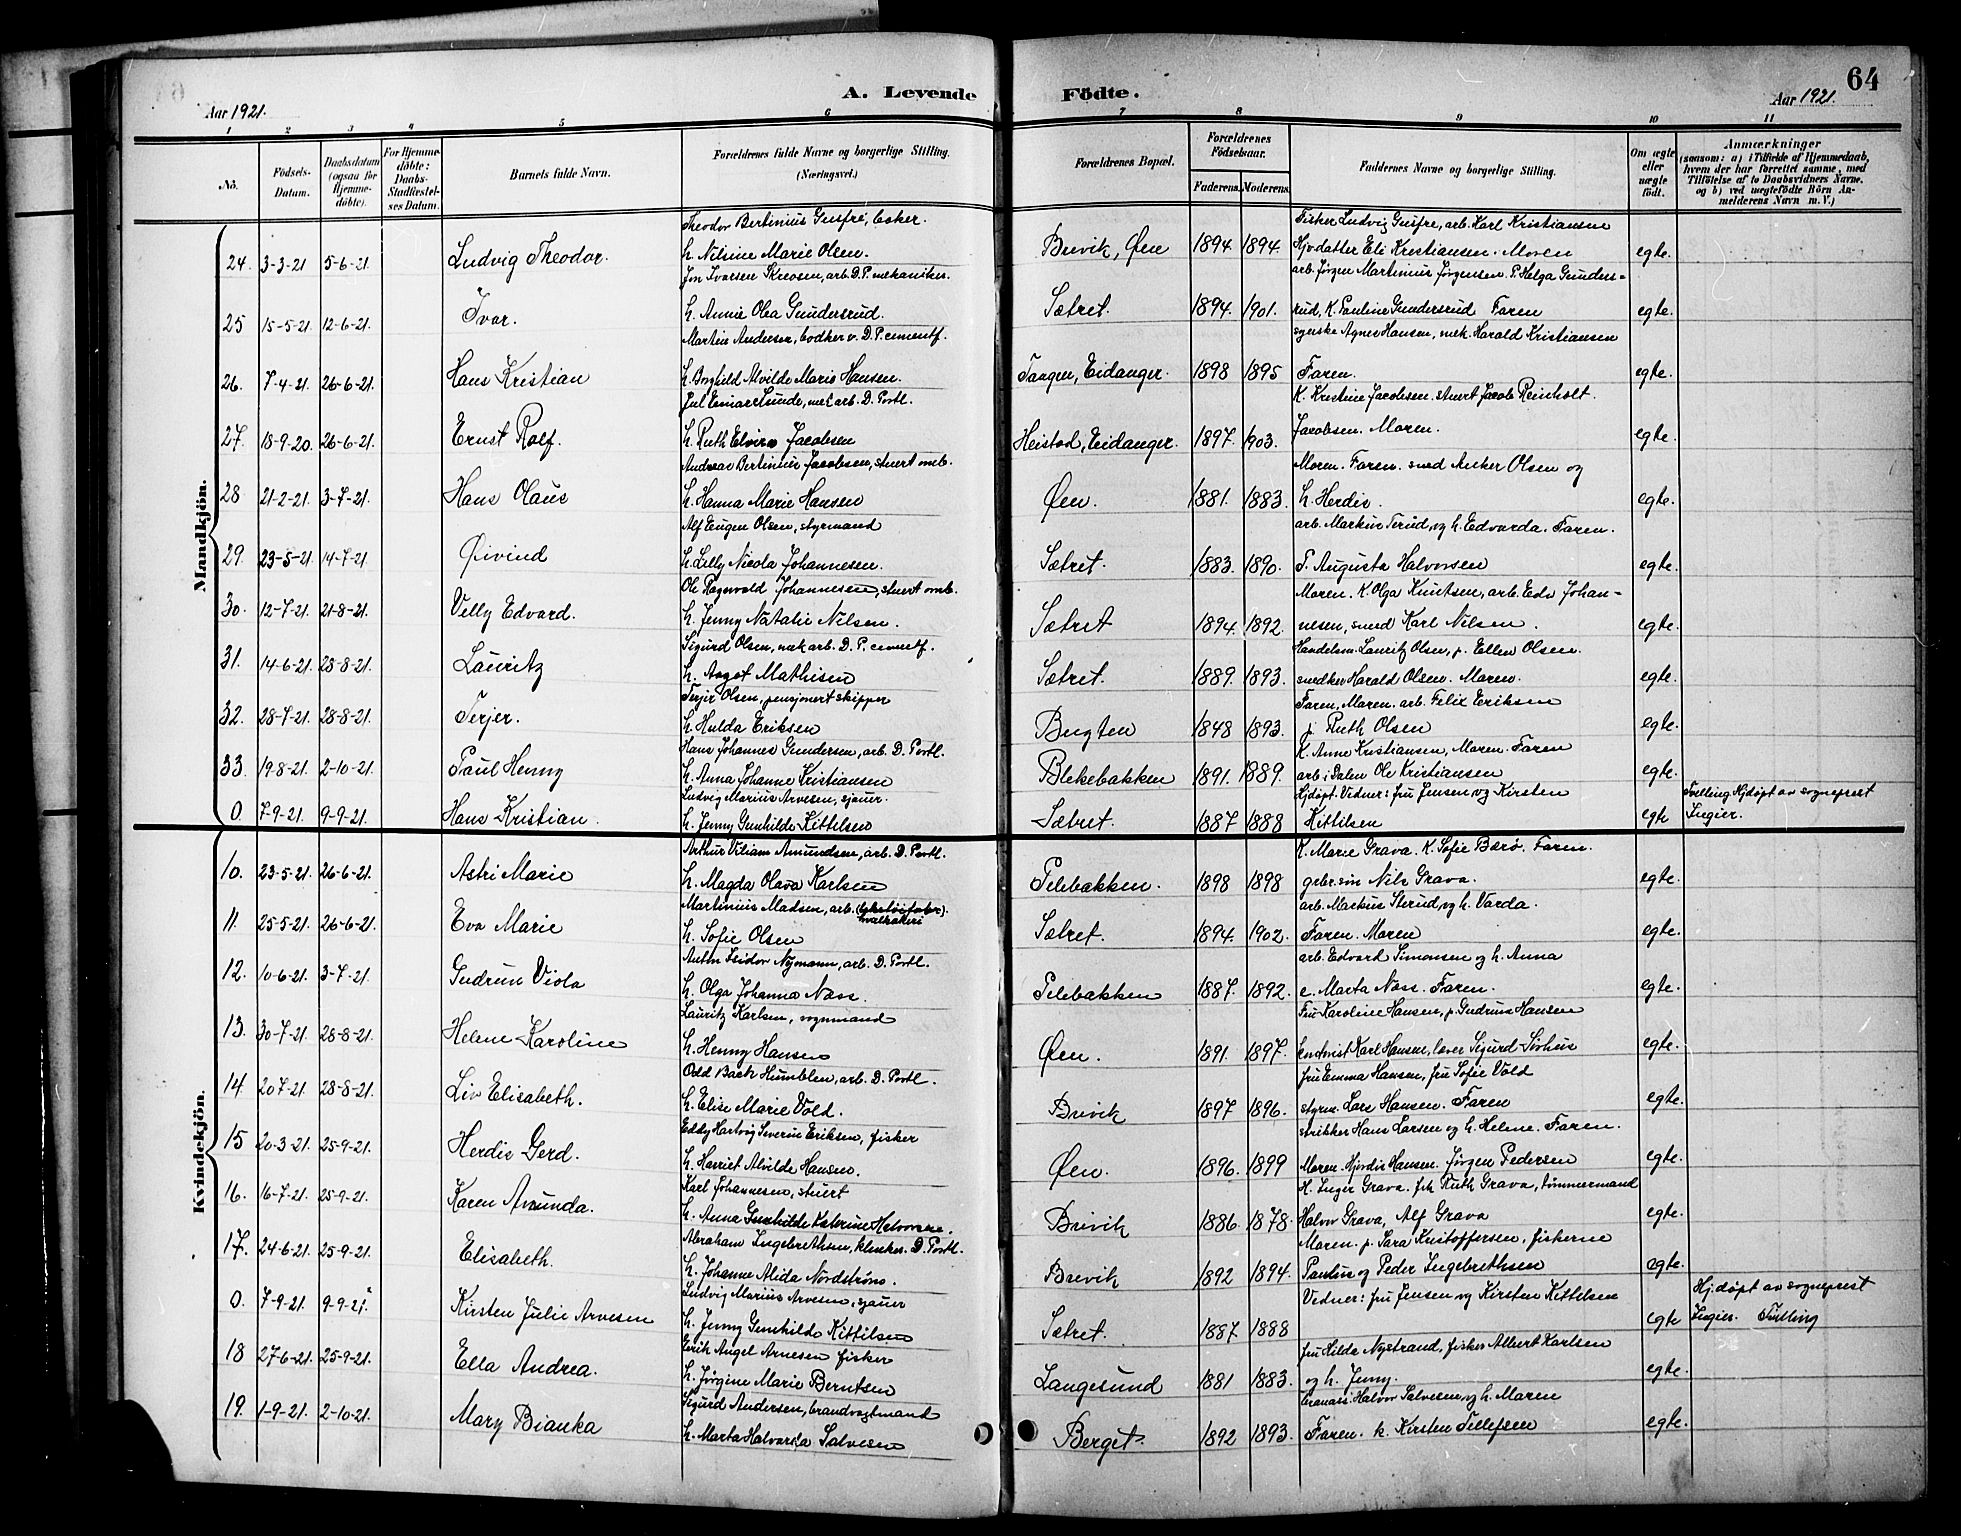 64
A. Levende Födte.
Aar 1921.
Aar 1921.
1 2 3 4 5 6 7 8 9 10 11
No.
Födsels-Datum.
Daabsdatum (ogsaa for Hjemmedöbte).
For Hjemmedöbte: Daabs-Stadfæstelses Datum.
Barnets fulde Navn.
Forældrenes fulde Navne og borgerlige Stilling. (Næringsvei.)
Forældrenes Bopæl.
Forældrenes Födselsaar.
Faderens. Moderens.
Faddernes Navne og borgerlige Stilling.
Om ægte eller uægte födt.
Anmærkninger (saasom: a) i Tilfælde af Hjemmedaab, hvem der har forrettet samme, med Tilföielse af to Daabsvidners Navne. og b) ved uægtefödte Börn Anmelderens Navn m. V.)
Mandkjön.
Theodor Bertinius Gusfre, Fisker Ludvig Gusfre, arb. Karl Kristiansen
24. 3-3-21 5-6-21 Ludvig Theodor. h. Nilsine Marie Olsen. Brevik, Øen 1894 1894. Eli Kristiansen. Moren egte.
Jon Ivarsen arb. D.P. mekaniker. arb. Jørgen Martinius Jørgensen. P. Helga Gunders-
25 15-5-21. 12-6-21. Ivar. h. Annie Olea Gundersrud. Sætret. 1894. 1901. rud, K. Pauline Gundersrud Faren egte.
Martin Andersen, bødker v. D.P. cementf. syerske Agnes Hansen, mek. Harald Kristiansen
26. 7-4-21. 26-6-21. Hans Kristian h. Borghild Alvilde Marie Hansen. Taagen, Eidanger. 1898 1895 Faren. egte.
Jul Einar Lunde, mek arb. D. Portl. K. Kristine Jacobsen. stuert Jacob Reinholt.
27. 18-9-20. 26-6-21. Ernst Rolf. h. Ruth Elvira Jacobsen Heistad, Eidanger. 1897. 1903. Jacobsen. Moren. egte.
Andreas Bertinius Jacobsen, stuert omb. Moren. Faren. smed Anker Olsen og
28 21-2-21. 3-7-21. Hans Olaus h. Hanna Marie Hansen Øen. 1881. 1883. h. Herdis. egte.
Alf Eugen Olsen, styrmand arb. Markus Terud, og h. Edvarda. Faren.
29. 23-5-21. 14-7-21 Øivind h. Lilly Nicola Johannesen. Sætret. 1883. 1890. P. Augusta Halvorsen egte.
Ole Ragnvald Johannesen, stuert omb. Moren. K. Olga Knutsen, arb. Edv Johan-
30. 12-7-21. 21-8-21. Velly Edvard. h. Jenny Natalie Nilsen. Sætret 1894. 1892. nesen, smed Karl Nilsen. egte.
Sigurd Olsen, mek arb. D.P. cementf. Handelsm. Lauritz Olsen, p. Ellen Olsen.
31. 14-6-21. 28-8-21. Lauritz h. Aagot Mathisen Sætret. 1889. 1893. snedker Harald Olsen. Moren. egte.
Terjer Olsen, pensjonert skipper Faren, Moren. arb. Felix Eriksen
32. 28-7-21. 28-8-21. Terjer. h. Hulda Eriksen Bugten 1848 1893. p. Ruth Olsen egte.
Hans Johannes Gundersen, arb. D. Portl. K. Anne Kristiansen, Moren. Faren
33. 19-8-21. 2-10-21. Paul Henny h. Anna Johanne Kristiansen Blekebakken 1891. 1889. arb. i Dalen Ole Kristiansen egte.
Ludvig Marius Arvesen, sjauer. Hjdøpt. Vedner: fru Jensen og Kirsten Tvelling Hjdøpt av sogneprest
0. 7-9-21. 9-9-21. Hans Kristian. h. Jenny Gunhilde Kittelsen Sætret. 1887 1888 Kittilsen egte Jngier.
Kvindekjön.
Arthur Viliam Amundsen, arb. D. Portl. K. Marie Grava. K. Sofie Bærø. Faren.
10. 23-5-21. 26-6-21. Astri Marie h. Magda Olava Karlsen Pelebakken. 1898 1898 grbr. søn Nils Grava. egte.
Martinius Madsen, arb. arb. Markus Sterud, og h. Varda.
11. 25-5-21. 26-6-21. Eva Marie h. Sofie Olsen Sætret. 1894. 1902. Faren. Moren egte.
Anton Isidor Nymann, arb. D. Portl. arb. Edvard Simonsen og h. Anna
12. 10-6-21. 3-7-21. Gudrun Viola h. Olga Johanna Næss. Pelebakken 1887. 1892. e. Marta Næss. Faren. egte.
Lauritz Karlsen, vognmand Fru Karoline Hansen, p. Gudrun Hansen
13. 30-7-21. 28-8-21. Helene Karoline h. Henny Hansen Øen. 1891. 1897. Karl Hansen, Sigurd egte.
Odd Bach Humblen, arb. D. Portl. fru Emma Hansen, fru Sofie Vold
14 20-7-21. 28-8-21. Liv Elisabeth. h. Elise Marie Vold. Brevik 1897 1896. styrm. Lars Hansen. Faren egte.
Eddy Hartvig Severin Eriksen, fisker strikker Hans Larsen og h. Helene. Faren.
15 20-3-21. 25-9-21. Herdis Gerd. h. Harriet Alvilde Hansen. Øen. 1896. 1899 Moren. Hjordis Hansen. Jørgen Pedersen egte.
Karl Johannesen, stuert H. Inger Grava. frk Ruth Grava, tømmermand
16. 16-7-21. 25-9-21. Karen Amunda. h. Anna Gunhilde Katerine Halvorsen. Brevik 1886. 1878. Halvor Grava, Alf Grava egte.
Abraham Ingebrethsen, D. Portl. Moren. p. Sara Kristoffersen, fiskerne
17. 24-6-21. 25-9-21. Elisabeth. h. Johanne Alida Nordstrøm. Brevik 1892 1894. Paulus og Peder Ingebrethsen egte.
Ludvig Marius Arvesen, sjauer Vedner: fru Jensen og Kirsten Kittelsen Hj.døpt av sogneprest
0. 7-9-21. 9-9-21. Kirsten Julie Arvesen h. Jenny Gunhilde Kittilsen Sætret. 1887 1888 egte Jngier. Tvilling
Erik Angel Arnesen fisker fru Hilda Nystrand, fisker Albert Karlsen
18 27-6-21. 25-9-21. Ella Andrea. h. Jørgine Marie Berntsen Langesund 1881 1883. og h. Jenny. egte.
Sigurd Andersen, brandvagtmand Halvor Salvesen, og h. Maren
19. 1-9-21. 2-10-21. Mary Bianka h. Marta Halvarda Salvesen Berget. 1892 1893. Faren. k. Kirsten Tellefsen egte.